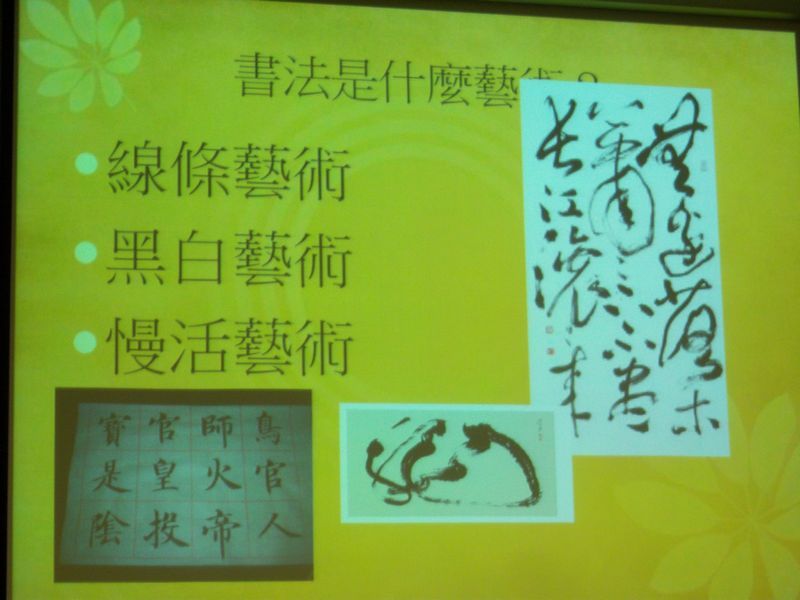 書法是什麼藝術？
線條藝術
黑白藝術
慢活藝術
無邊落木
蕭々下不盡
長江滾々來
鳥官人
師火帝
官皇投
寶是陰